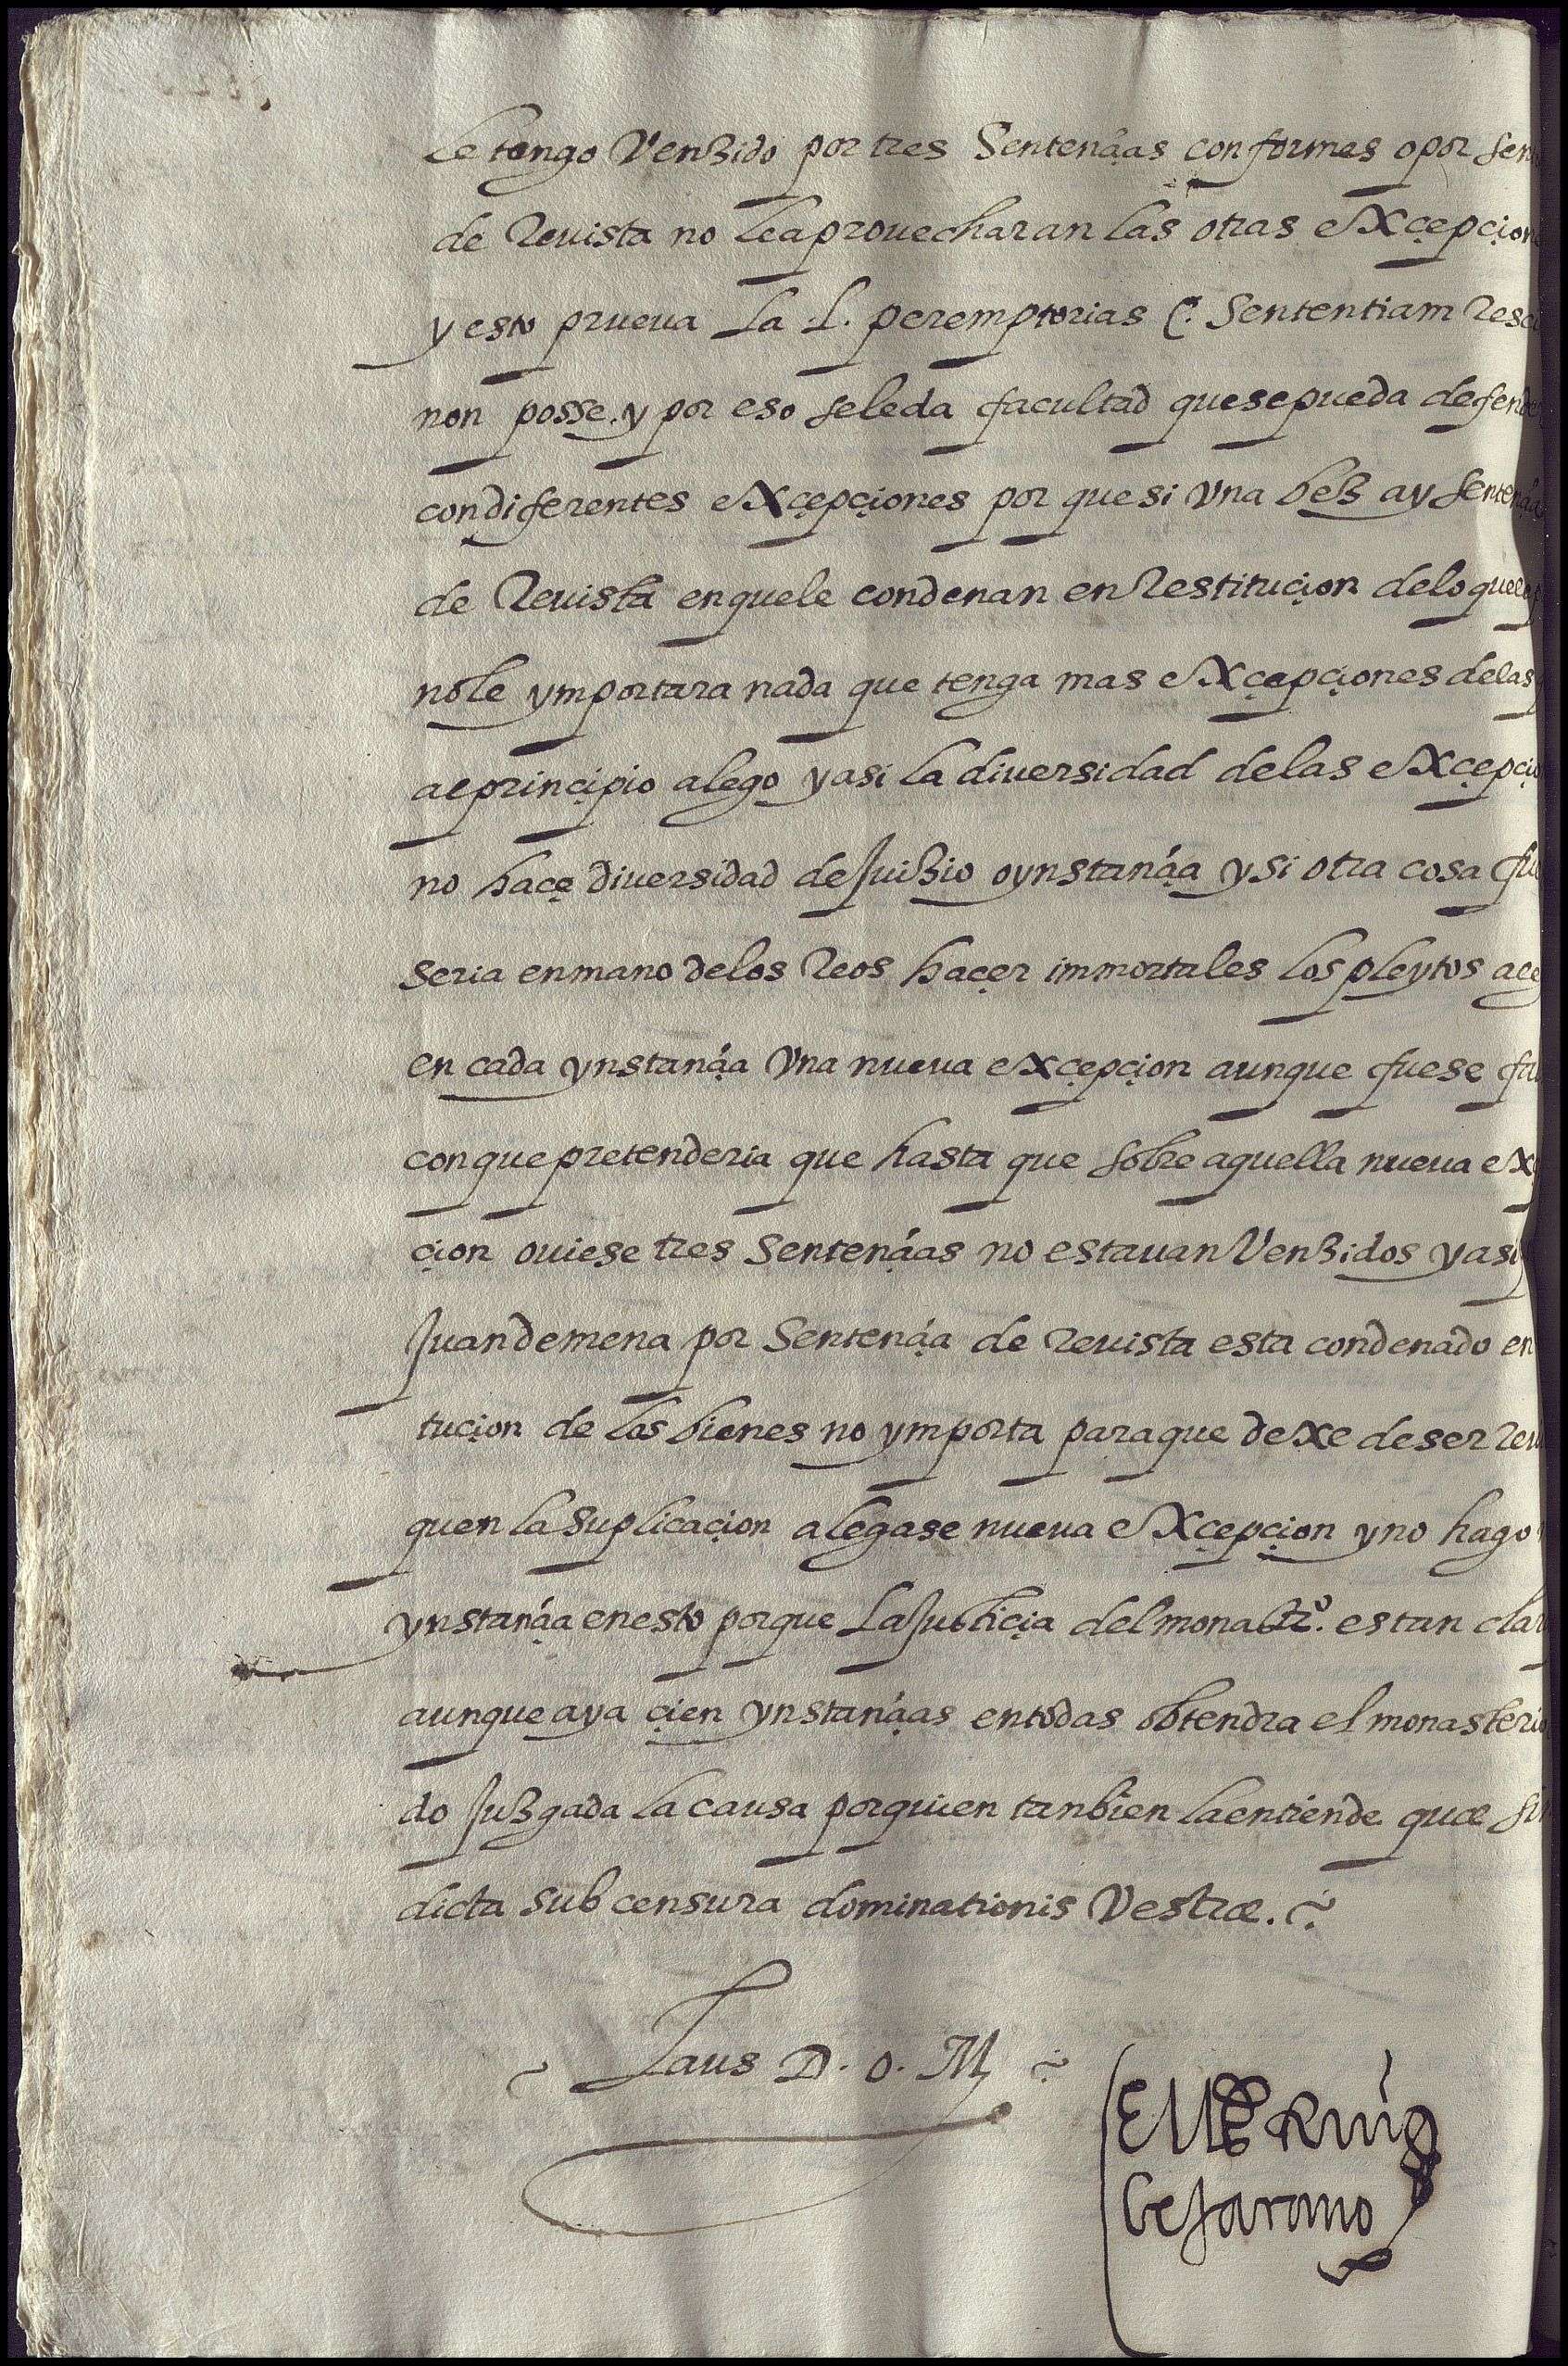 le tengo Venzido por tres Sentençias conformes o por sen
de Revista no le aprouecharan las otras eXçepçion
y esto prueua La L. peremptorias C. Sententiam resci
non posse. y por eso se le da facultad que se pueda defender
con diferentes eXçepçiones por que si Vna bez ay sentençia
de Revista en que le condenan en Restituçion de lo que
no le ymportara nada que tenga mas eXçepçiones de las
al prinçipio alego y asi la diuersidad de las eXçepçio
no haçe diuersidad de Juizio o ynstançia y si otra cosa fue
seria en mano de los Reos haçer immortales los pleytos aleg
en cada ynstançia Vna nueua eXçepçion aunque fuese fal
con que pretenderia que hasta que sobre aquella nueua eX
çion ouiese tres Sentençias no estauan Venzidos y asi
Juan de mena por Sentençia de revista esta condenado en
tuçion de los bienes no ymporta para que deXe de ser reui
qu en la suplicaçion alegase nueua eXçepçion y no hago
ynstançia en esto porque La Justiçia del monastrº. es tan clar
aunque aya çien ynstançias en todas obtendra el monasterio
do Juzgada la causa por quien tan bien la entiende quæ sin
dicta sub censura dominationis Vestræ.
Laus D. O. M
Ruiz
beJarano